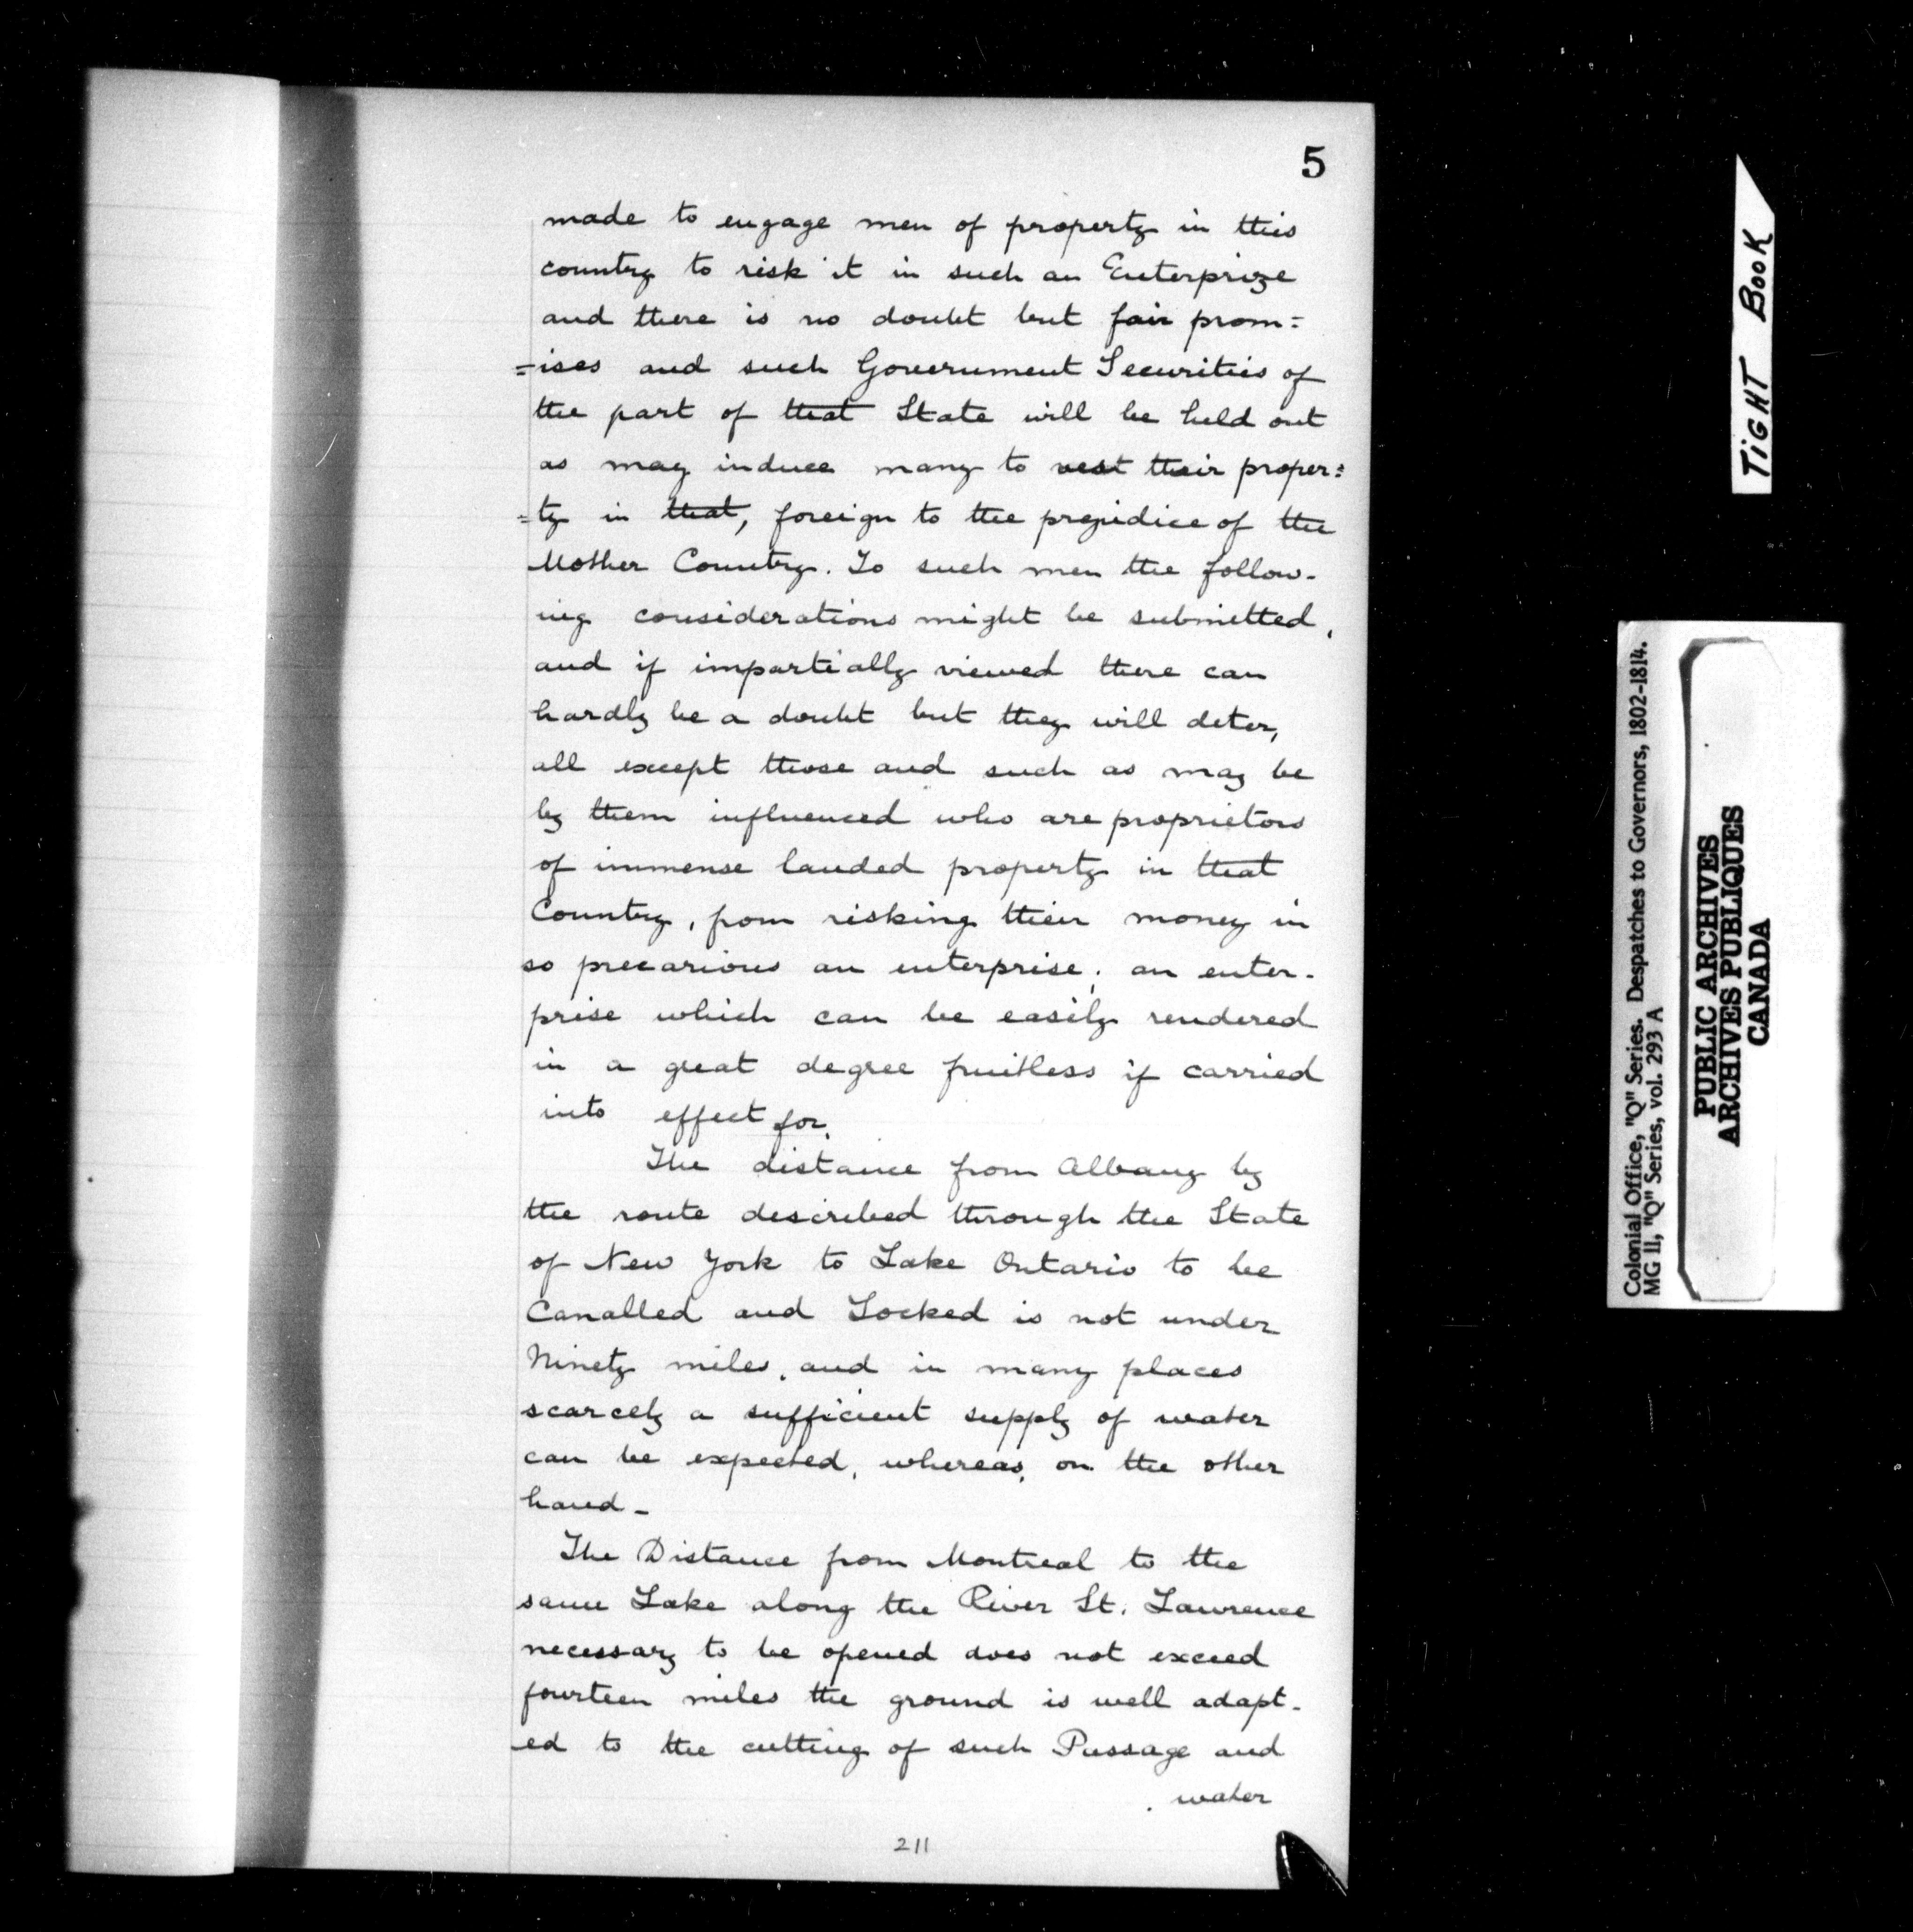 5
made to engage men of property in this
country to risk it in such an Enterprize
and there is no doubt but fair prom=
=ises and such Government Securities of
the part of that State will be held out
as may induce many to vest their proper=
=ty in that, foreign to the prejudice of the
Mother Country. To such men the follow-
ing considerations might be submitted,
and if impartially viewed there can
hardly be a doubt but they will deter,
all except those and such as may be
by them influenced who are proprietors
of immense landed property in that
Country, from risking their money in
so precarious an enterprise; an enter-
prise which can be easily rendered
in a great degree fruitless if carried
into effect for,
The distance from Albany by
the route described through the State
of New York to Lake Ontario to be
Canalled and Locked is not under
Ninety miles, and in many places
scarcely a sufficient supply of water
can be expected, whereas, on the other
hand-
The Distance from Montreal to the
same Lake along the River St. Lawrence
necessary to be opened does not exceed
fourteen miles the ground is well adapt-
ed to the cutting of such Passage and
water
211
TIGHT BOOK
Colonial Office, "Q" Series. Despatches to Governors, 1802-1814.
MG 11, "Q" Series, vol. 293 A
PUBLIC ARCHIVES
ARCHIVES PUBLIQUES
CANADA